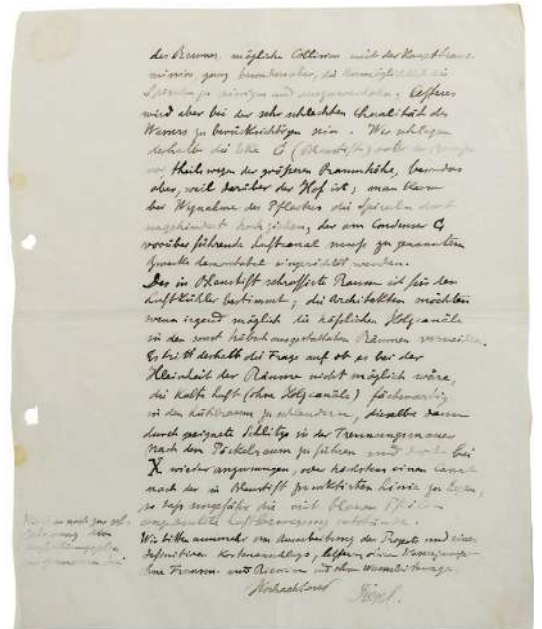 des Raumes, mögliche Collision mit der Haupttrans-
mission, ganz besonders aber, die Unmöglichkeit die
Spiralen zu reinigen und auszuwechseln. Letzteres
wird aber bei der sehr schlechten Qualität des
Wassers zu berücksichtigen sein. Wir schlagen
deshalb die Ecke C (Blaustift) unter der
vor, theils wegen der größeren Raumhöhe, besonders
aber, weil darüber der Hof ist; man kann
bei Wegnahme des Pflasters die Spiralen dort
ungehindert hochziehen, der am Condenser C
vorüber führende Luftcanal muss zu genanntem
Zwecke demontabel eingerichtet werden.
Der in Blaustift schraffirte Raum ist für den
Luftkühler bestimmt; die Architekten möchten
wenn irgend möglich die häßlichen Holzcanäle
in den sonst hübsch ausgestatteten Räumen vermeiden.
Es tritt deshalb die Frage auf ob es bei der
Kleinheit der Räume nicht möglich wäre,
die kalte Luft (ohne Holzcanäle) fächerartig
in den Kühlraum zu schleudern, dieselbe dann
durch geeignete Schlitze in der Trennungsmauer
nach dem Pöckelraum zu führen und dort bei
X wieder anzusaugen, oder höchstens einen Canal
nach der in Blaustift punktirten Linie zu legen,
so dass ungefähr die mit blauen Pfeilen
angedeutete Luftbewegung entstünde.
Wir bitten nunmehr um Ausarbeitung des Projects und eines
definitiven Kostenanschlags, letzteren ohne
ohne Transm. und Riemen und ohne Wasserleitungen.
Hochachtend
Diesel.